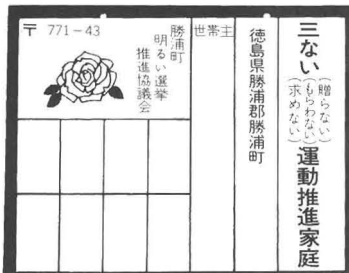 三ない(贈らない)(もらわない)(求めない)運動推進家庭
徳島県勝浦郡勝浦町
世帯主
勝浦町
明るい選挙
推進協議会
〒 771-43